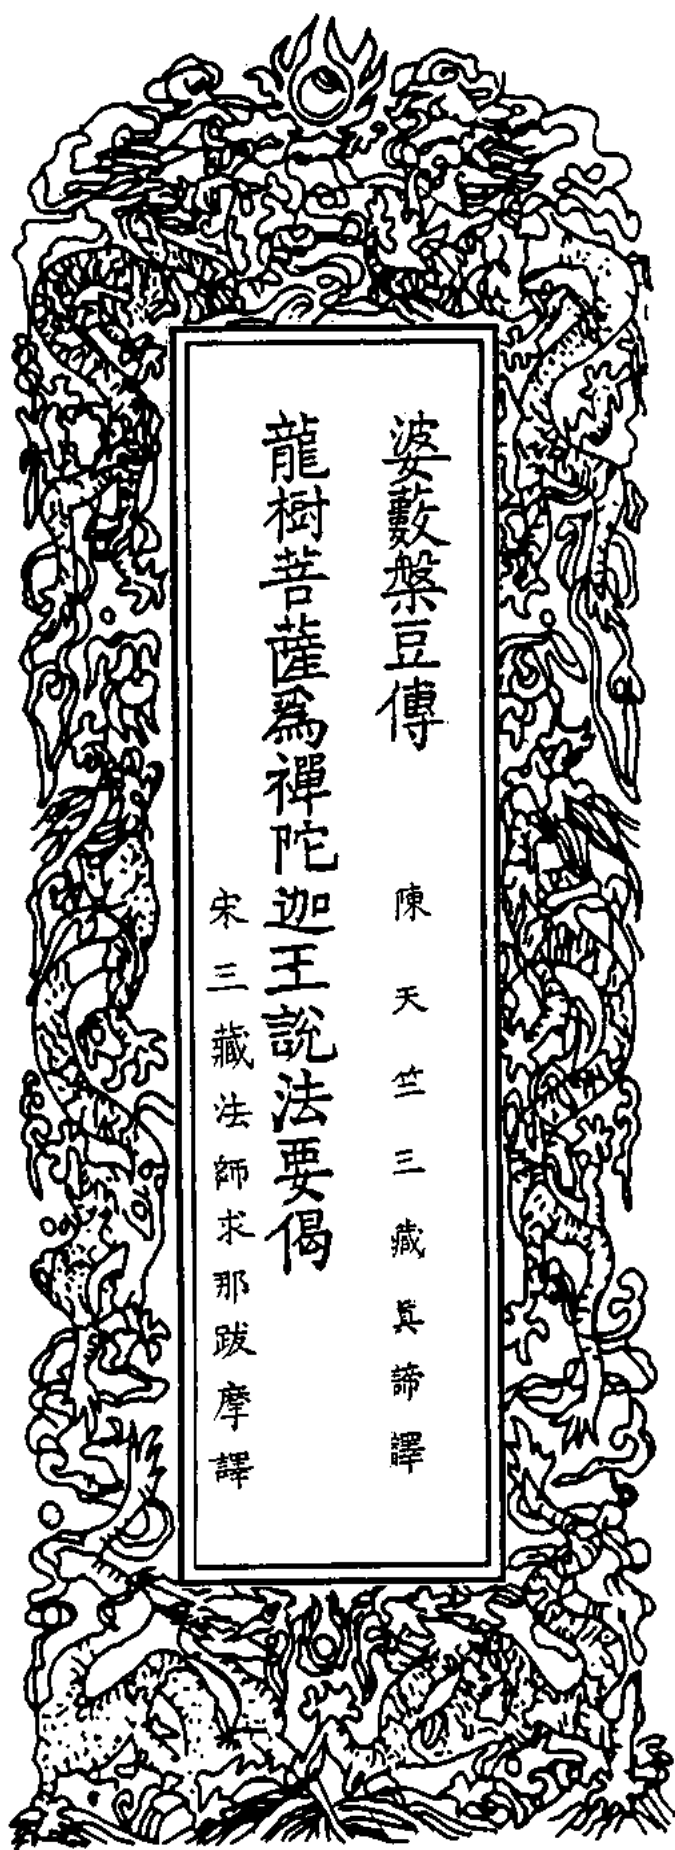 婆藪槃豆傳
陳天竺三藏眞諦譯
龍樹菩薩爲禪陀迦王說法要偈
宋三藏法師求那跋摩譯